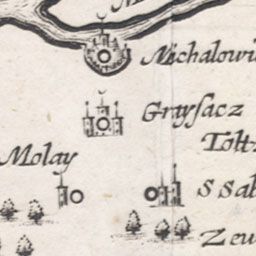 Michalowi
Grayſacz
Molay
S Sab
Zew